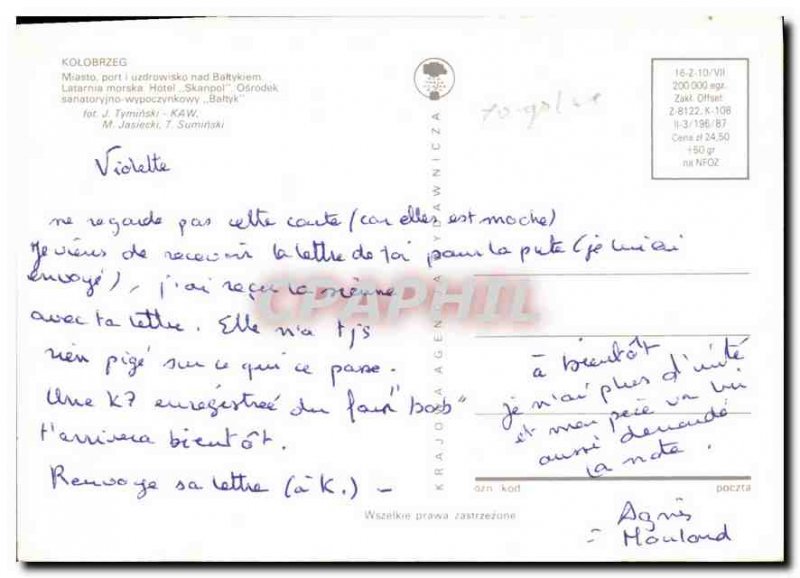 KOŁOBRZEG
Miasto, port i uzdrowisko nad Bałtykiem.
Latarnia morska. Hotel „Skanpol”. Ośrodek
sanatoryjno-wypoczynkowy „Bałtyk”
fot. J. Tymiński - KAW,
M. Jasiecki, T. Sumiński
16-2-10/VII
200 000 egz.
Zakł. Offset
Z-8122. K-108
II-3/196/87
Cena zł 24,50
+50 gr
na NFOZ
Violette
ne regarde pas cette carte (car elle est moche)
Je viens de recevoir la lettre de toi pour la pute (je lui ai
envoyé), j'ai reçu la sienne
avec ta lettre. Elle n'a tjs
rien pigé sur ce qui ce passe.
Une K7 enregistreé du "bob"
t'arrivera bientôt.
Renvoye sa lettre (à K.) -
à bientôt
je n'ai plus d'unité
et mon père va lui
aussi demandé
la note.
Agnès
KRAJOWA AGENCJA WYDAWNICZA
CPAPHIL
ozn kod poczta
Wszelkie prawa zastrzeżone